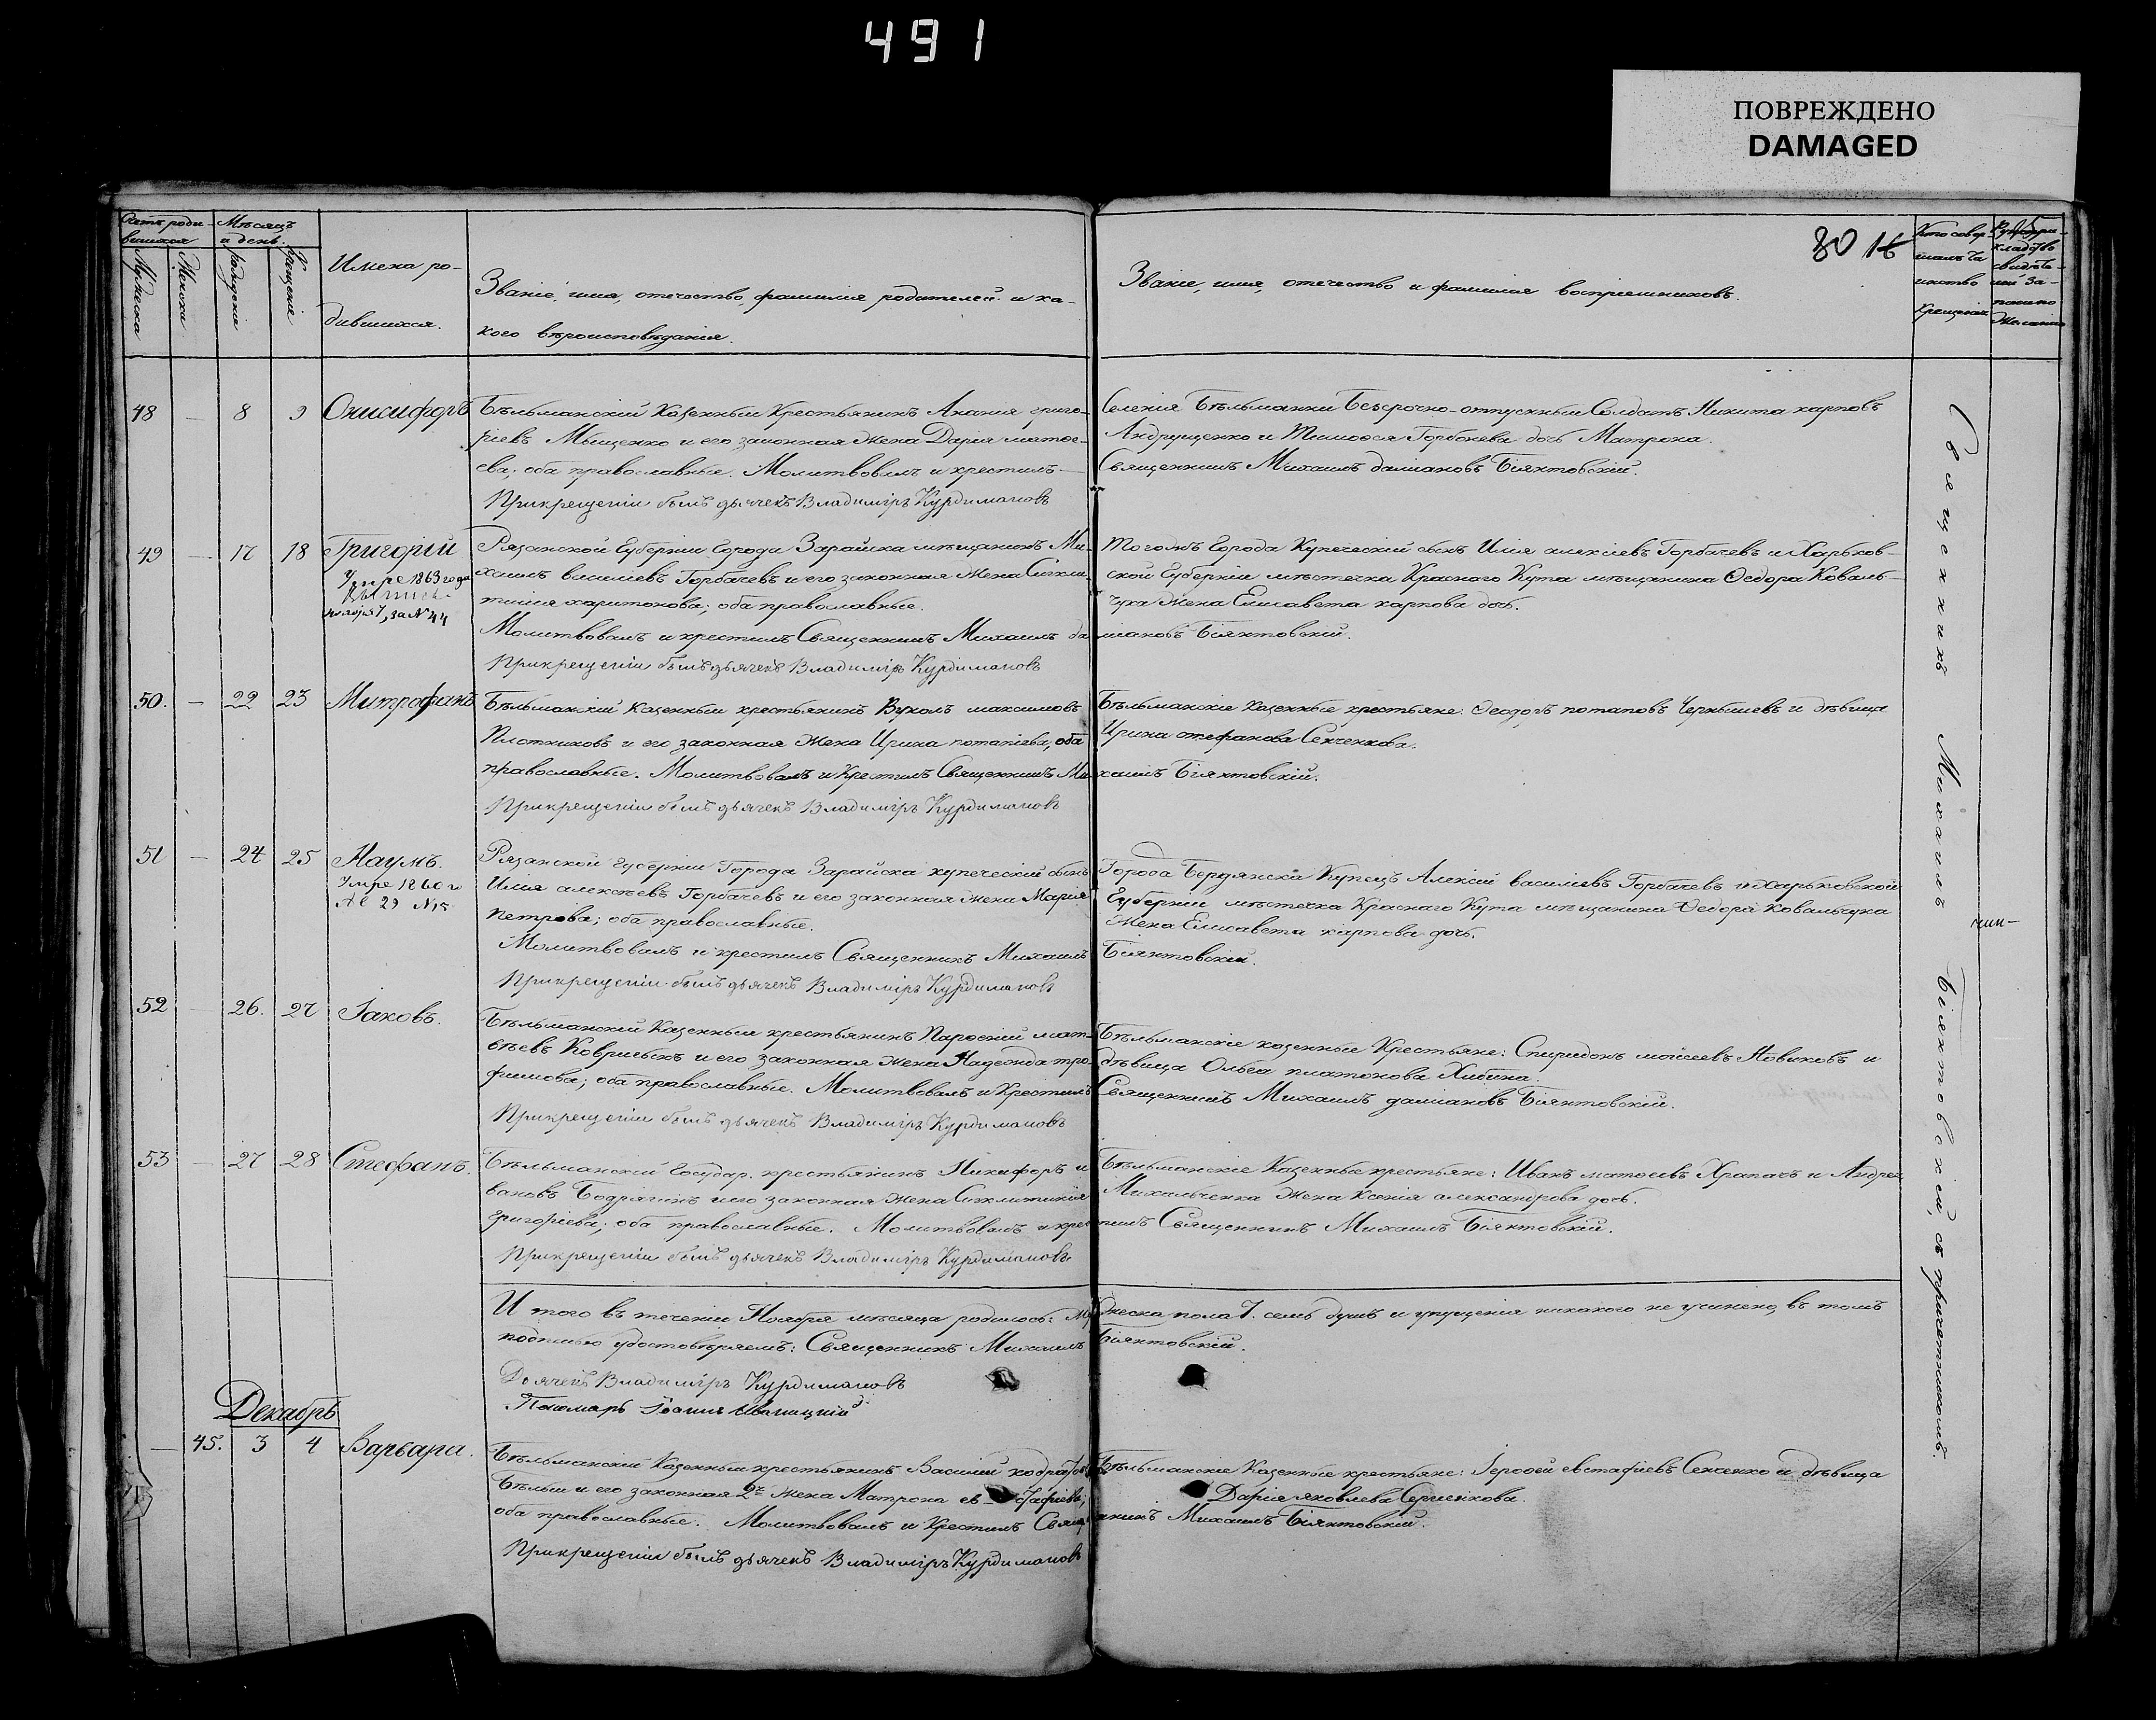 491
ПОВРЕЖДЕНО
DAMAGED
Счетъ роди-
вшихся
Мѣсяцъ
и день.
Мужеска
Женска
рожденія
крещенія
Имена ро-
дившихся.
Званіе, имя, отечество, фамилія родителей. и ка-
кого вѣроисповѣданія.
80
Званіе, имя, отечество и фамилія воспріемниковъ.
Кто совер-
шалъ та
инство
крещенія
48 — 8 9 Онисифоръ
Бѣльманскій Казенный Крестьянинъ Анания григо-
ріевъ Мищенко и его законная жена Дарія матѳе-
ева; оба православные. Молитвовалъ и крестилъ
Прикрещеніи былъ дьячекъ Владиміръ Курдимановъ
Селенія Бѣльманки Безсрочно-отпускный Солдатъ Никита карповъ
Андрущенко и Тимоѳея Горбонева дочь Матрона.
Священникъ Михаилъ даміановъ Біяктовскій.
49 — 17 18 Григорій
Умре 1863 года
за № 44
Рязанской Губерніи Города Зарайска мѣщанинъ Ми-
хаилъ василіевъ Горбачевъ и его законная жена Сигкли-
тикія харитонова; оба православные.
Молитвовалъ и крестилъ Священникъ Михаилъ да
Прикрещеніи былъ дьячекъ Владиміръ Курдимановъ
Тогожъ Города Купеческій сынъ Илія алексіевъ Горбачевъ и Харьков-
ской Губерніи мѣстечка Краснаго Кута мѣщанина Ѳедора Коваль-
чука жена Елисавета карпова дочь.
міановъ Біяктовскій.
50. — 22 23 Митрофанъ
Бѣльманскій казенный крестьянинъ Вуколъ максимовъ
Плотниковъ и его законная жена Ирина потапіева; оба
православные. Молитвовалъ и Крестилъ Священникъ Ми
Прикрещеніи былъ дьячекъ Владиміръ Курдимановъ
Бѣльманскіе казенные крестьяне: Ѳеодоръ потаповъ Чернышевъ и дѣвица
Ирина стефанова Сенченкова.
хаилъ Біяктовскій.
51 — 24 25 Наумъ.
Умре 1860 го
29 №15
Рязанской Губерніи Города Зарайска купеческій сынъ
Илія алексѣевъ Горбачевъ и его законная жена Марія
Петрова; оба православные.
Молитвовалъ и крестилъ Священникъ Михаилъ
Прикрещеніи былъ дьячекъ Владиміръ Курдимановъ
Города Бердянска Купецъ Алексій василіевъ Горбачевъ и Харьковской
Губерніи мѣстечка Краснаго Кута мѣщанина Ѳедора Ковальчука
Жена Елисавета карпова дочь.
Біяктовскій.
52 — 26. 27 Іаковъ.
Бѣльманскій Казенный крестьянинъ Парѳеній мат-
вѣевъ и его законная жена Надежда тро
фимова; оба православные. Молитвовалъ и Крестилъ
Прикрещеніи былъ дьячекъ Владиміръ Курдимановъ
Бѣльманскіе козенные Крестьяне: Спиридонъ моісеевъ Новиковъ и
дѣвица Ольга платонова Хибина.
Священникъ Михаилъ даміановъ Біяктовскій.
53 — 27 28 Стефанъ.
Бѣльманскій Государ. крестьянинъ Никифоръ и
вановъ Бодрягинъ и его законная жена Сигклитикія
григоріева; оба православные. Молитвовалъ и кре
Прикрещеніи былъ дьячекъ Владиміръ Курдимановъ
Бѣльманскіе Казенные крестьяне: Иванъ матѳеевъ Храпачъ и Андрея
Михальченка жена Ксенія александрова дочь.
тилъ Священникъ Михаилъ Біяктовскій.
И того въ теченіи Ноября мѣсяца родилось: му
жеска пола 7. семь душъ и упущенія никакого не учинено, въ томъ
подписью удостовѣряемъ: Священникъ Михаилъ
Біяктовскій.
Дьячекъ Владиміръ Курдимановъ
Пономарь Іоаннъ
Декабрь
— 45. 3 4 Варвара.
Бѣльманскій Казенный крестьянинъ Василій
Бѣлый и его законная 2я жена Матрона ев-стафіева;
оба православные. Молитвовалъ и Крестилъ Свяще
Прикрещеніи былъ дьячекъ Владиміръ Курдимановъ
Бѣльманскіе Казенные крестьяне: Іероѳей евстафіевъ Сенченко и дѣвица
Дарія яковлева Сергиенкова.
нникъ Михаилъ Біяктовскій.
Священникъ Михаилъ Біяктовскій, съ причетникомъ